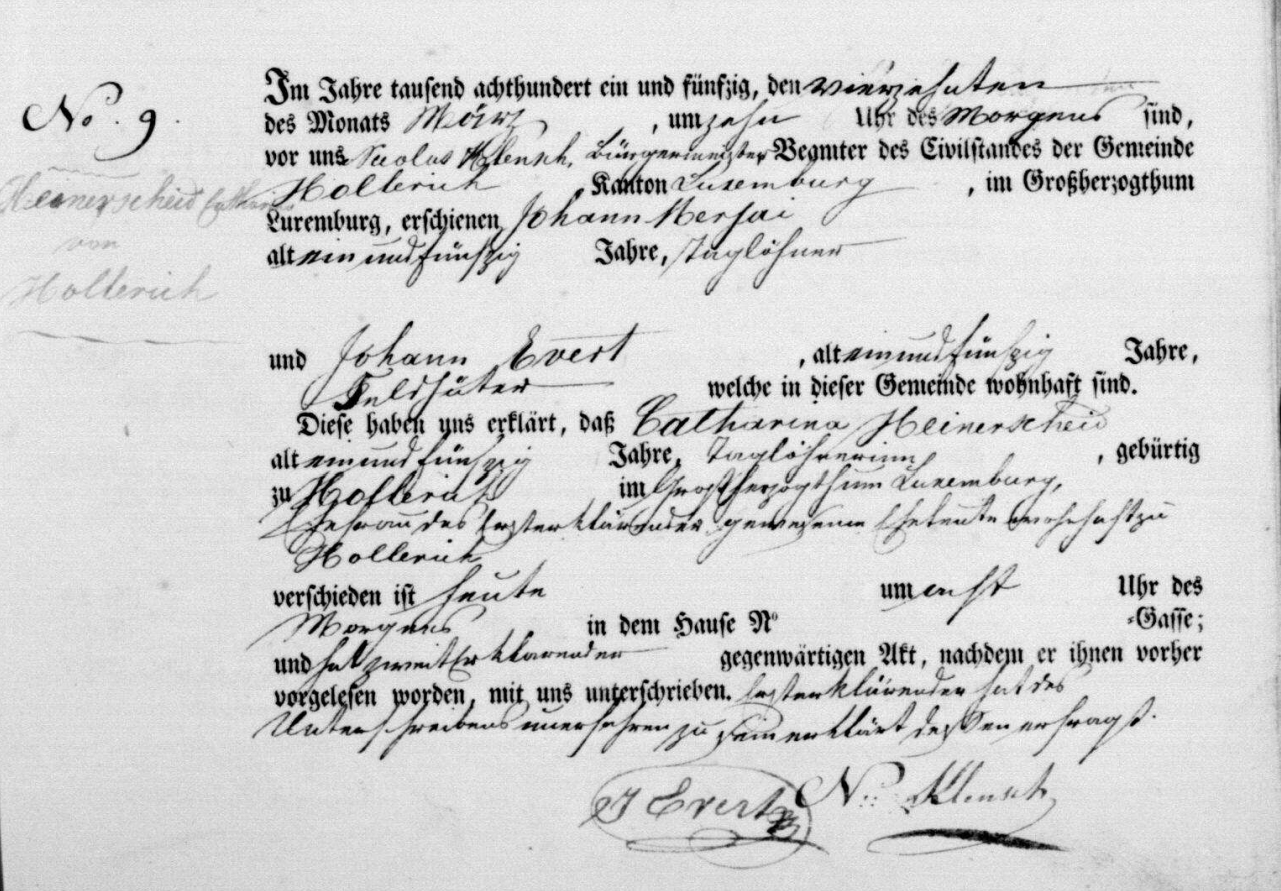 No. 9.
Heinerscheid Catharina
von
Hollerich
Im Jahre tausend achthundert ein und fünfzig, den vierzehnten
des Monats März, um zehn Uhr des Morgens sind,
vor uns Nicolas Klensch, Bürgermeister Beamter des Civilstandes der Gemeinde
Hollerich, Kanton Luxemburg, im Großherzogthum
Luxemburg, erschienen Johann
alt ein und fünfzig Jahre, Taglöhner
und Johann Evert, alt ein und fünfzig Jahre,
Feldhüter welche in dieser Gemeinde wohnhaft sind.
Diese haben uns erklärt, daß Catharina Heinerscheid
alt ein und fünfzig Jahre, Taglöhnerinn, gebürtig
zu Hollerich im Großherzogthum Luxemburg,
Ehefrau des Ersterklärenden gewesene Eheleute wohnhaft zu
Hollerich
verschieden ist heute um acht Uhr des
Morgens in dem Hause No -Gasse;
und hat zweit Erklärender gegenwärtigen Akt, nachdem er ihnen vorher
vorgelesen worden, mit uns unterschrieben. Ersterklärender hat des
Unterschreibens unerfahren zu sein erklärt dessen erfragt.
J Evert Nic. Klensch